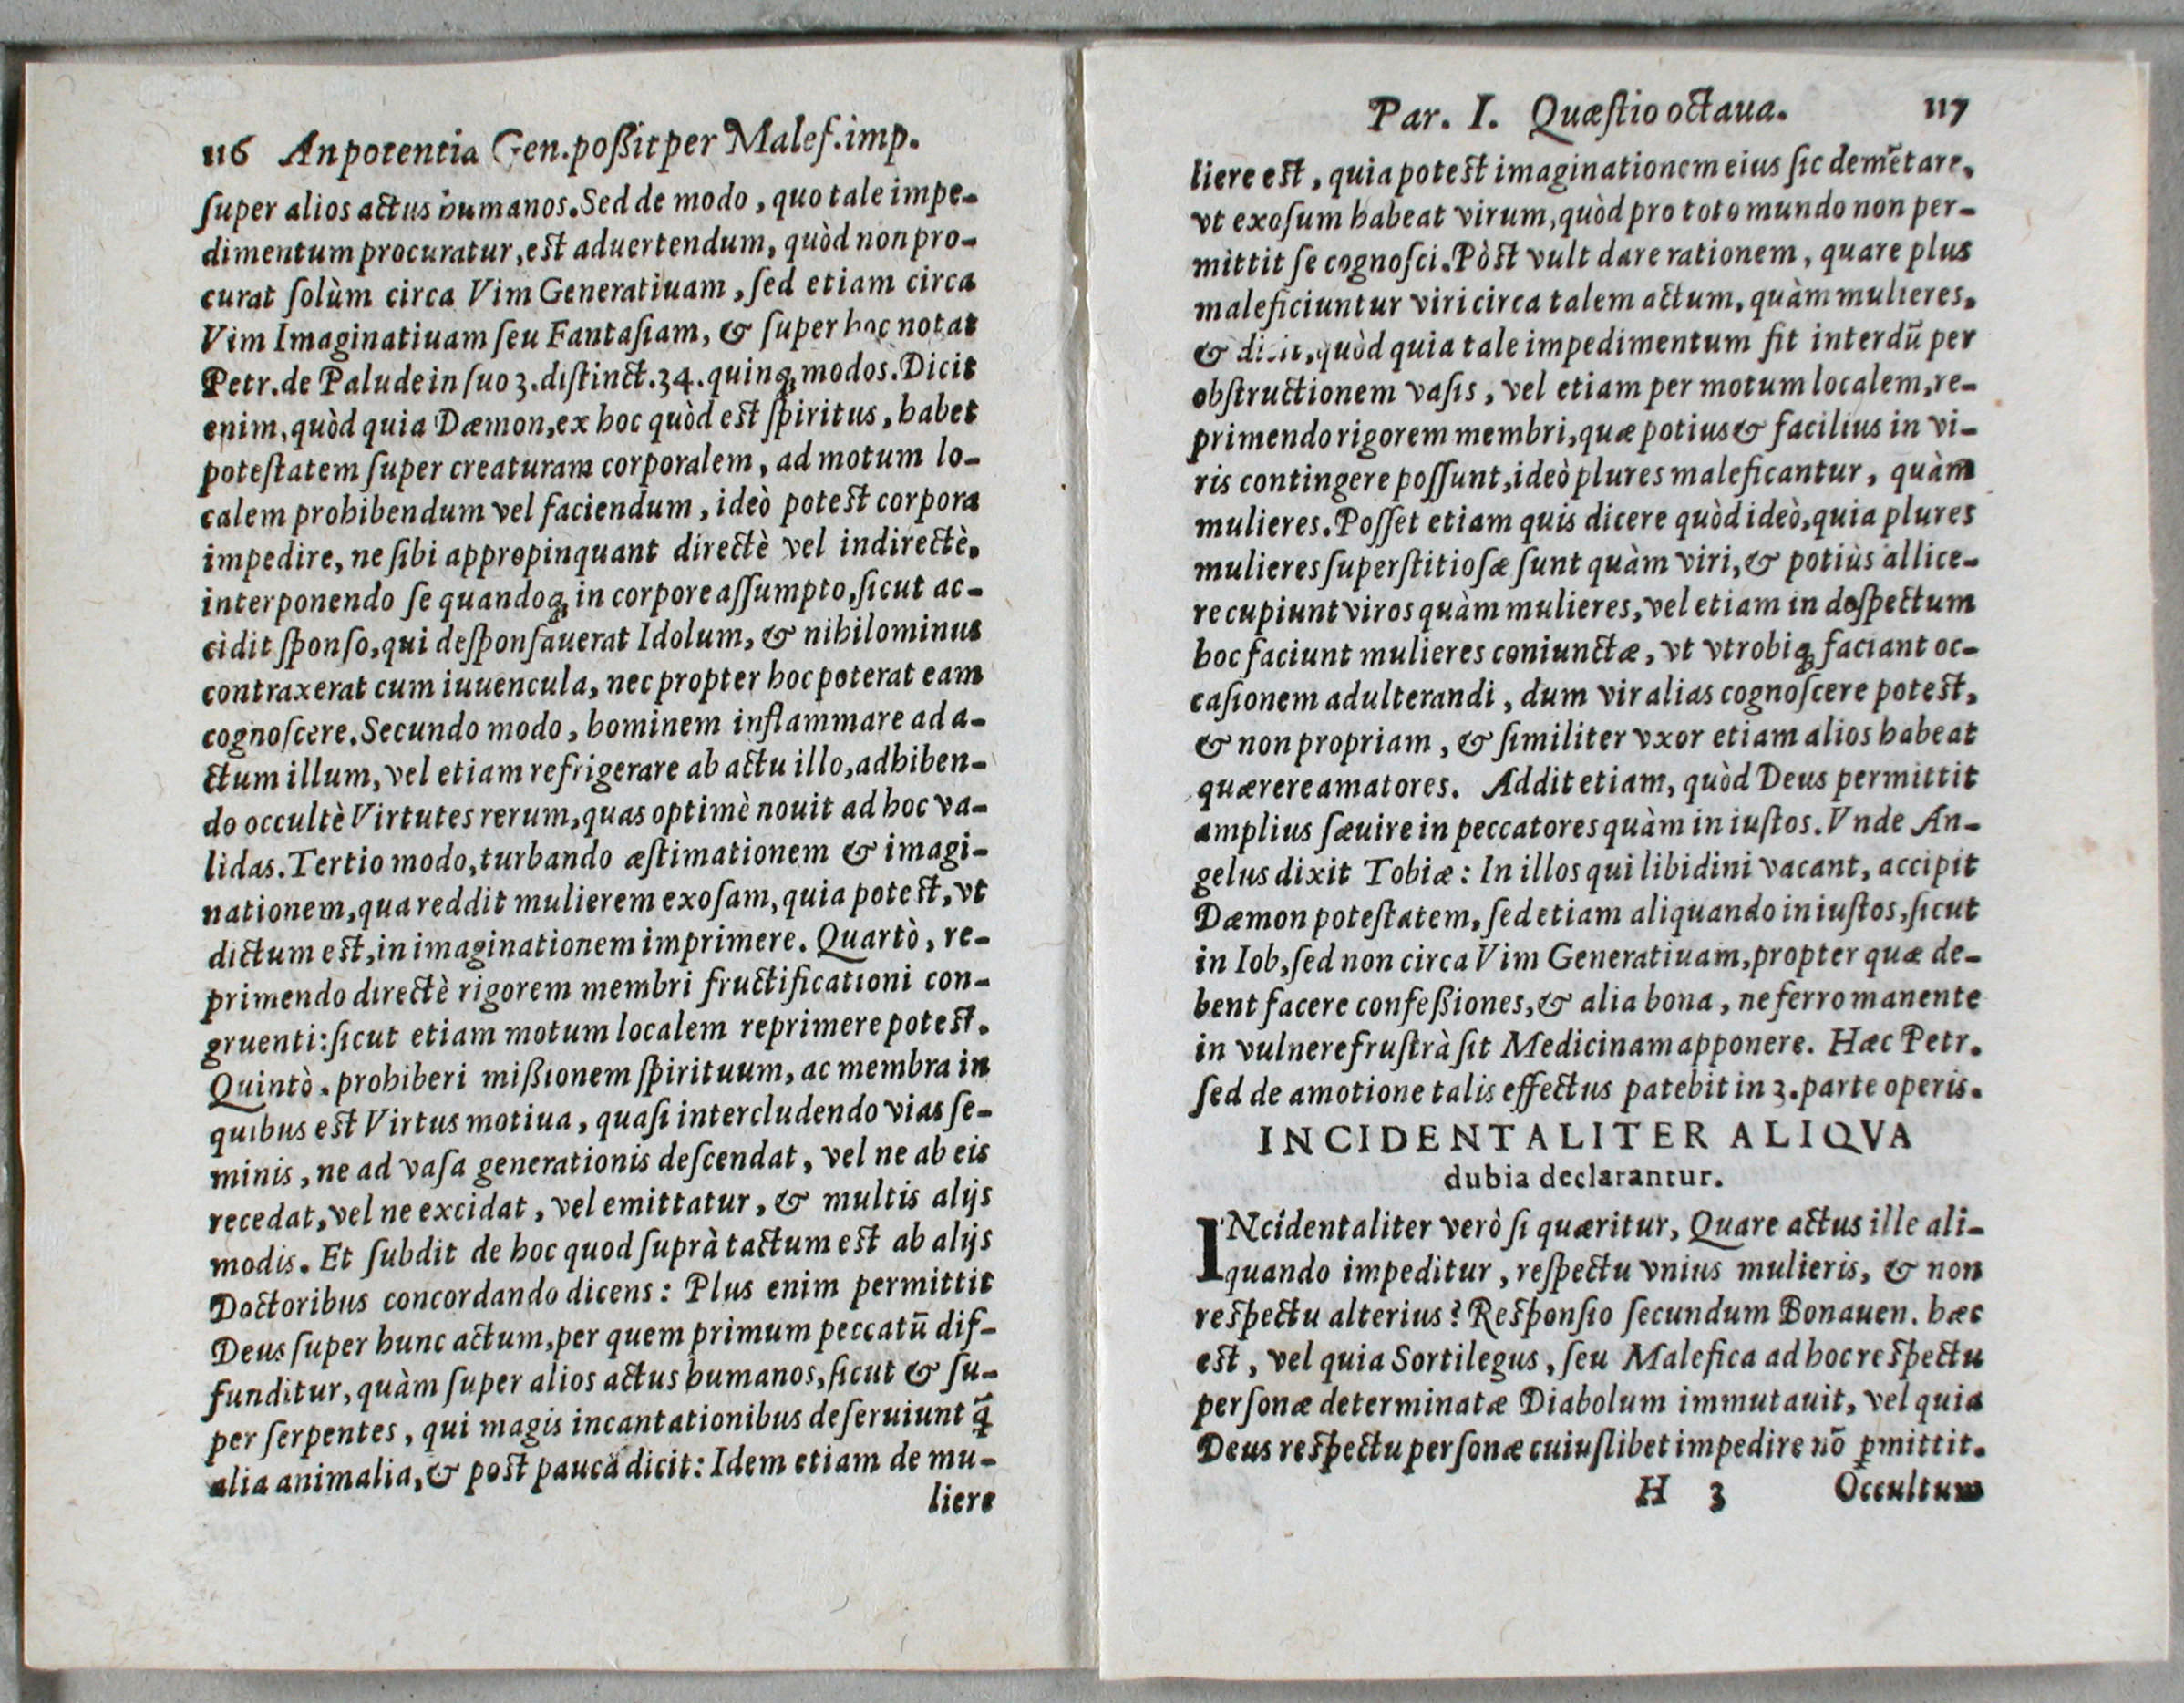 116 An potentia Gen. poßit per Malef. imp.
ſuper alios actus humanos. Sed de modo, quo tale impe-
dimentum procuratur, eſt aduertendum, quòd non pro-
curat ſolùm circa Vim Generatiuam, ſed etiam circa
Vim Imaginatiuam ſeu Fantaſiam, & ſuper hoc notat
Petr. de Palude in ſuo 3. diſtinct. 34. quinq; modos. Dicit
enim, quòd quia Dæmon, ex hoc quòd eſt ſpiritus, habet
poteſtatem ſuper creaturam corporalem, ad motum lo-
calem prohibendum vel faciendum, ideò poteſt corpora
impedire, ne ſibi appropinquant directè vel indirectè,
interponendo ſe quandoq; in corpore aſſumpto, ſicut ac-
cidit ſponſo, qui deſponſauerat Idolum, & nihilominus
contraxerat cum iuuencula, nec propter hoc poterat eam
cognoſcere. Secundo modo, hominem inflammare ad a-
ctum illum, vel etiam refrigerare ab actu illo, adhiben-
do occultè Virtutes rerum, quas optimè nouit ad hoc va-
lidas. Tertio modo, turbando æſtimationem & imagi-
nationem, qua reddit mulierem exoſam, quia poteſt, vt
dictum eſt, in imaginationem imprimere. Quartò, re-
primendo directè rigorem membri fructificationi con-
gruenti: ſicut etiam motum localem reprimere poteſt.
Quintò. prohiberi mißionem ſpirituum, ac membra in
quibus eſt Virtus motiua, quaſi intercludendo vias ſe-
minis, ne ad vaſa generationis deſcendat, vel ne ab eis
recedat, vel ne excidat, vel emittatur, & multis alijs
modis. Et ſubdit de hoc quod ſuprà tactum eſt ab alijs
Doctoribus concordando dicens: Plus enim permittit
Deus ſuper hunc actum, per quem primum peccatū dif-
funditur, quàm ſuper alios actus humanos, ſicut & ſu-
per ſerpentes, qui magis incantationibus deſeruiunt q̄
alia animalia, & poſt pauca dicit: Idem etiam de mu-
liere
Par. I. Quæſtio octaua. 117
liere eſt, quia poteſt imaginationem eius ſic demētare,
vt exoſum habeat virum, quòd pro toto mundo non per-
mittit ſe cognoſci. Pòſt vult dare rationem, quare plus
maleficiuntur viri circa talem actum, quàm mulieres,
& dicit, quòd quia tale impedimentum fit interdū per
obſtructionem vaſis, vel etiam per motum localem, re-
primendo rigorem membri, quæ potius & facilius in vi-
ris contingere poſſunt, ideò plures maleficantur, quàm
mulieres. Poſſet etiam quis dicere quòd ideò, quia plures
mulieres ſuperſtitioſæ ſunt quàm viri, & potiùs allice-
re cupiunt viros quàm mulieres, vel etiam in deſpectum
hoc faciunt mulieres coniunctæ, vt vtrobiq; faciant oc-
caſionem adulterandi, dum vir alias cognoſcere poteſt,
& non propriam, & ſimiliter vxor etiam alios habeat
quærere amatores. Addit etiam, quòd Deus permittit
amplius ſæuire in peccatores quàm in iuſtos. Vnde An-
gelus dixit Tobiæ: In illos qui libidini vacant, accipit
Dæmon poteſtatem, ſed etiam aliquando in iuſtos, ſicut
in Iob, ſed non circa Vim Generatiuam, propter quæ de-
bent facere confeßiones, & alia bona, ne ferro manente
in vulnere fruſtrà ſit Medicinam apponere. Hæc Petr.
ſed de amotione talis effectus patebit in 3. parte operis.
INCIDENTALITER ALIQVA
dubia declarantur.
INcidentaliter verò ſi quæritur, Quare actus ille ali-
quando impeditur, reſpectu vnius mulieris, & non
reſpectu alterius? Reſponſio ſecundum Bonauen. hæc
eſt, vel quia Sortilegus, ſeu Malefica ad hoc reſpectu
perſonæ determinatæ Diabolum immutauit, vel quia
Deus reſpectu perſonæ cuiuſlibet impedire nō ꝑmittit.
H 3 Occultum